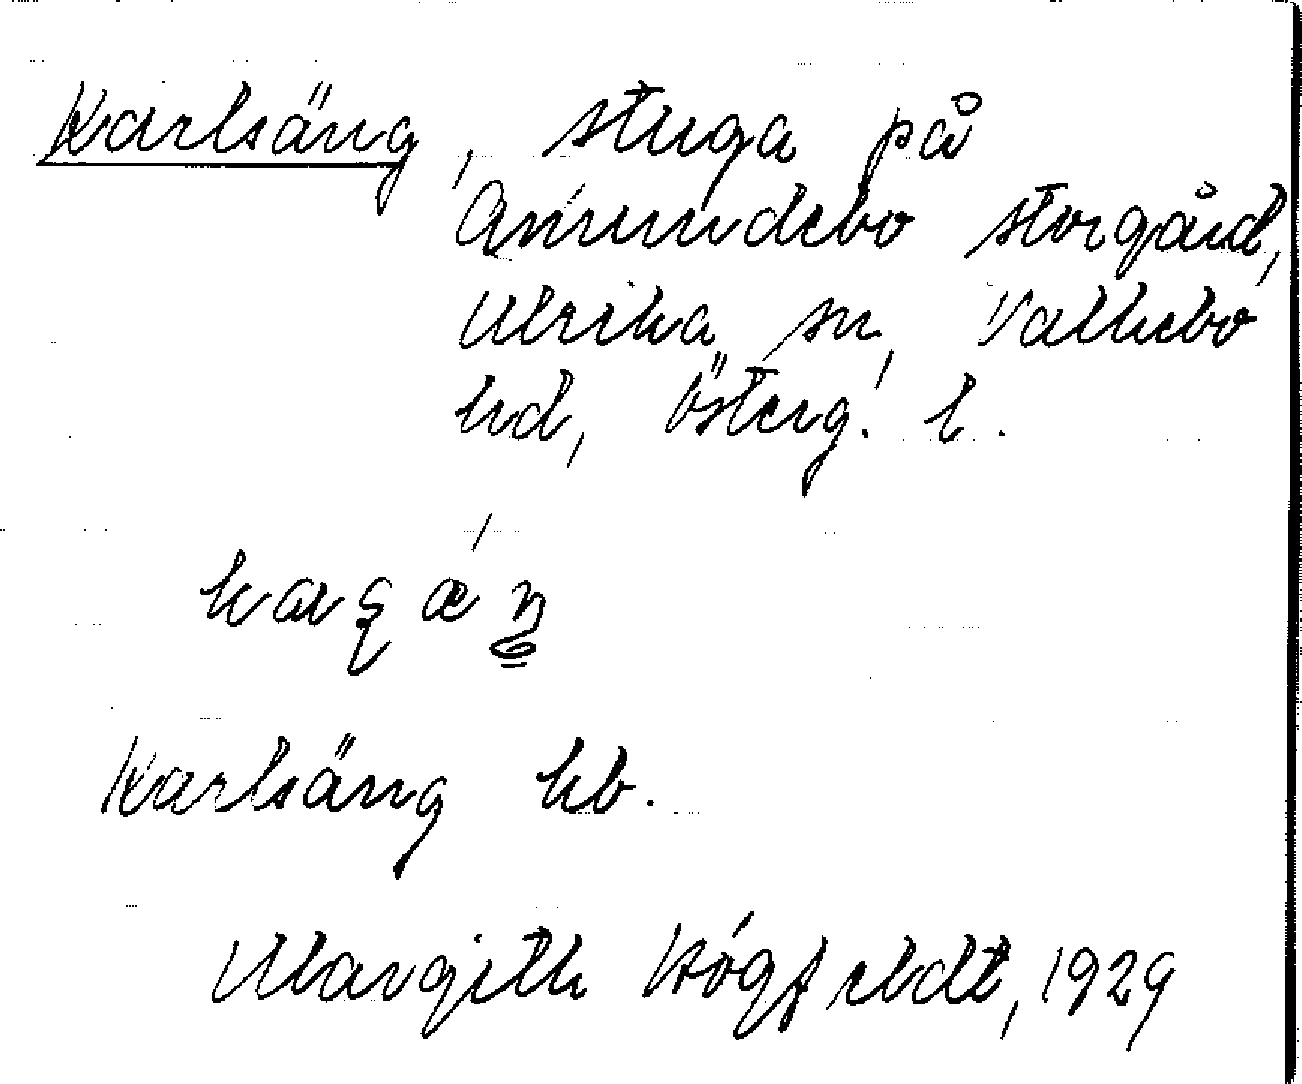 Karlsäng, stuga på
Amundebo storgård,
Ulrika sn, Valkebo
hd, Österg. l.
Karlsäng kb.
Margith Högfeldt, 1929